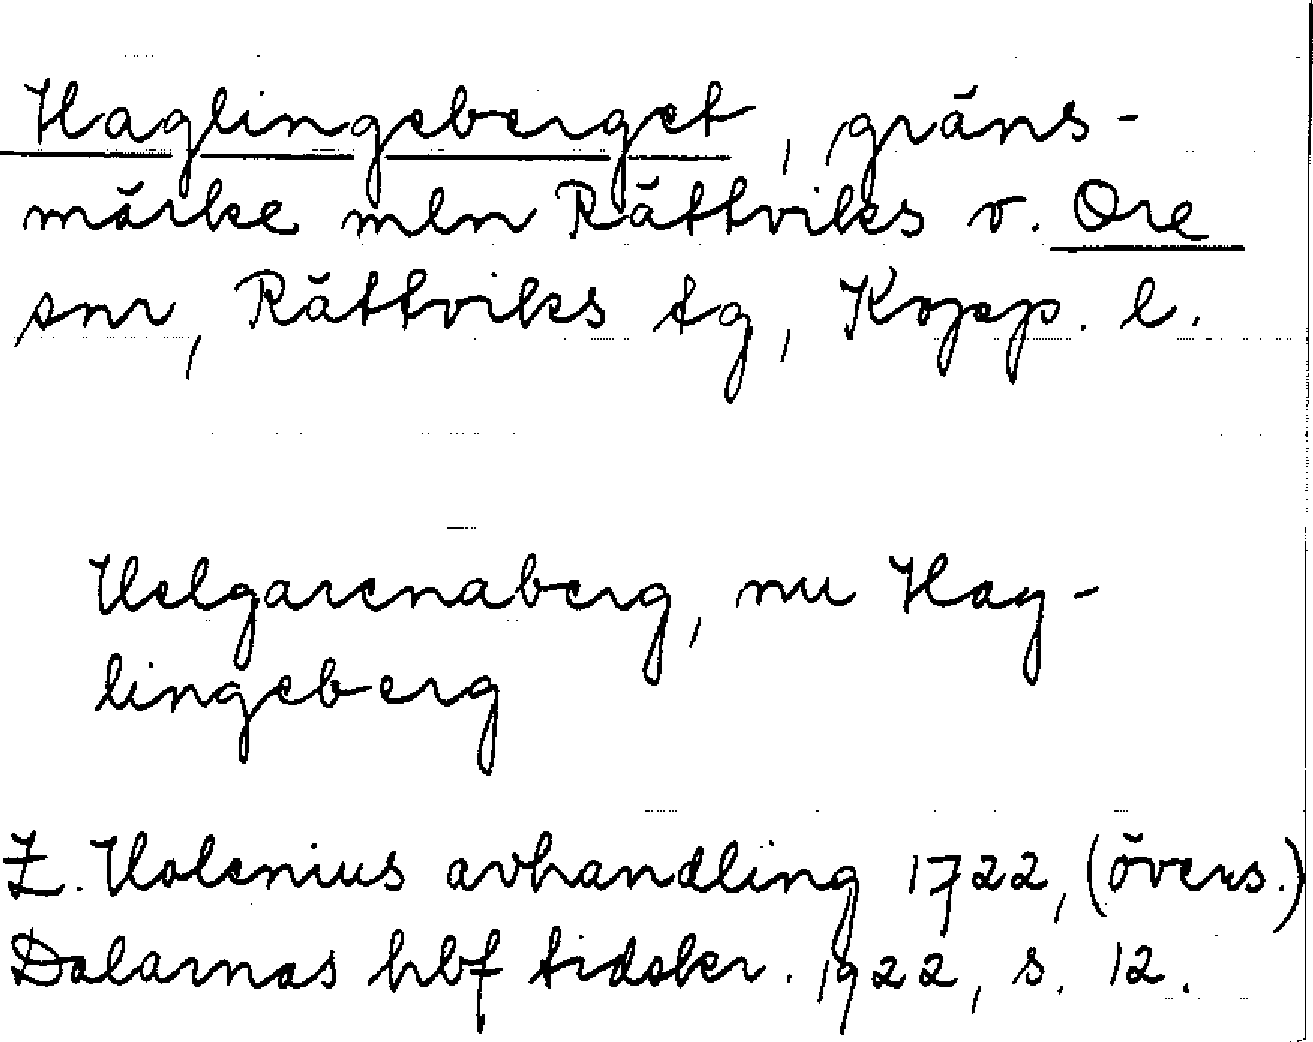 Haglingeberget, gräns-
märke mln Rättviks o. Ore
snr, Rättviks tg, Kopp. l.
Helgarenaberg, nu Hag-
lingeberg
Z. Holenius avhandling 1722, (övers.)
Dalarnas hbf tidskr. 1922, s. 12.